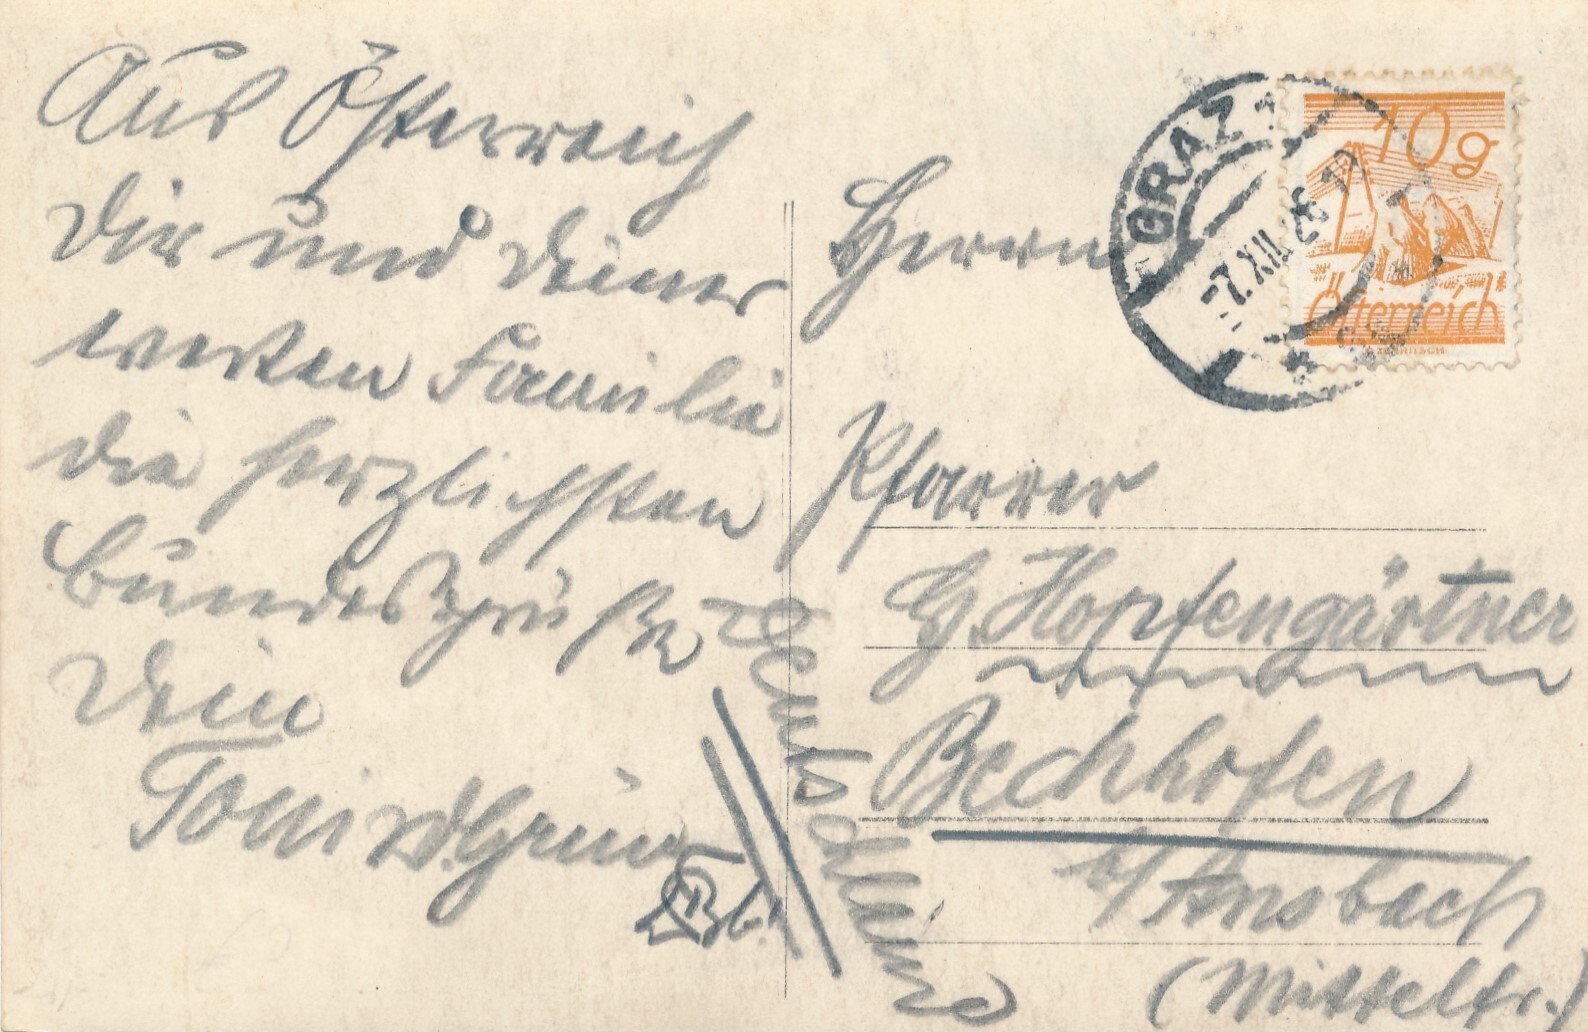 Aus Österreich
Dir und Deiner
werten Familie
die herzlichsten
Bundesgrüße
Dein
Toni
Herrn
Pfarrer
G. Hopfengärtner
Bechhofen
b/Ansbach
(Mittelfr.)
Deutschland
GRAZ 1
7.XII
10g
Österreich